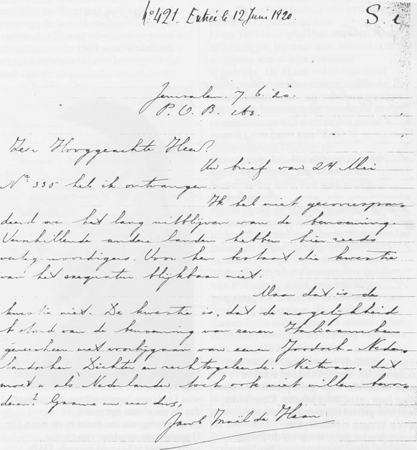 No 421. Entrée le 12 Juni 1920. S. i
Jerusalem 7. 6. 20.
P.O.B.
Zeer Hooggeachte Heer,
Uw brief van 24 Mei
No 335 heb ik ontvangen.
Ik heb niet gecorrespon
deerd over het lang uitblijven van de benoeming.
Verschillende andere landen hebben hier reeds
vertegenwoordigers. Voor hen bestaat die kwestie
van het exequatur blijkbaar niet.
Maar dat is de
kwestie niet. De kwestie is, dat de mogelijkheid
bestond van de benoeming van eenen Italiaanschen
met voorbijgaan van eenen Joodsch Neder
landschen Dichter en rechtsgeleerde. Nietwaar, dat
moet u als Nederlander toch ook niet willen bevor
deren?
Jacob Israël de Haan